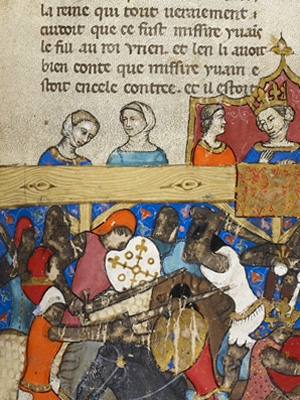 la reine qui tout ueraiement
auroit que ce fust missire yuais
le fill au roi vrien. et len li auoit
bien conte que missire yuain e
stoit en cele contree. et il estoit